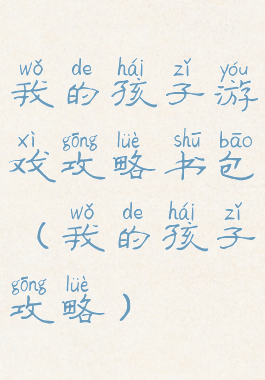 wǒ de hái zǐ yóu
我的孩子游
xì gōng lüè shū bāo
戏攻略书包
wǒ de hái zǐ
（我的孩子
gōng lüè
攻略）